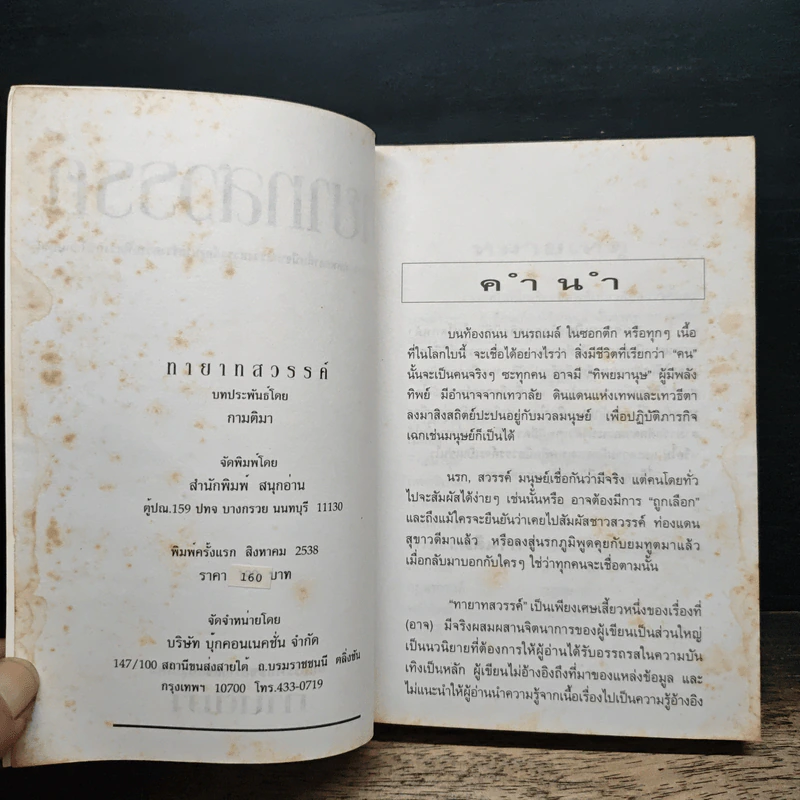 ทายาทสวรรค์
บทประพันธ์โดย
กามติมา
จัดพิมพ์โดย
สำนักพิมพ์ สนุกอ่าน
ตู้ปณ.159 ปทจ บางกรวย นนทบุรี 11130
พิมพ์ครั้งแรก สิงหาคม 2538
ราคา 160 บาท
จัดจำหน่ายโดย
บริษัท บุ๊กคอนเนคชั่น จำกัด
147/100 สถานีขนส่งสายใต้ ถ.บรมราชชนนี ตลิ่งชัน
กรุงเทพฯ 10700 โทร.433-0719
คำนำ
บนท้องถนน บนรถเมล์ ในซอกตึก หรือทุกๆ เนื้อ
ที่ในโลกใบนี้ จะเชื่อได้อย่างไรว่า สิ่งมีชีวิตที่เรียกว่า “คน”
นั้นจะเป็นคนจริงๆ ซะทุกคน อาจมี “ทิพยมานุษ” ผู้มีพลัง
ทิพย์ มีอำนาจจากเทวาลัย ดินแดนแห่งเทพและเทวธิดา
ลงมาสิงสถิตย์ปะปนอยู่กับมวลมนุษย์ เพื่อปฏิบัติภารกิจ
เฉกเช่นมนุษย์ก็เป็นได้
นรก, สวรรค์ มนุษย์เชื่อกันว่ามีจริง แต่คนโดยทั่ว
ไปจะสัมผัสได้ง่ายๆ เช่นนั้นหรือ อาจต้องมีการ “ถูกเลือก”
และถึงแม้ใครจะยืนยันว่าเคยไปสัมผัสชาวสวรรค์ ท่องแดน
สุขาวดีมาแล้ว หรือลงสู่นรกภูมิพูดคุยกับยมทูตมาแล้ว
เมื่อกลับมาบอกกับใครๆ ใช่ว่าทุกคนจะเชื่อตามนั้น
“ทายาทสวรรค์” เป็นเพียงเศษเสี้ยวหนึ่งของเรื่องที่
(อาจ) มีจริงผสมผสานจิตนาการของผู้เขียนเป็นส่วนใหญ่
เป็นนวนิยายที่ต้องการให้ผู้อ่านได้รับอรรถรสในความบัน
เทิงเป็นหลัก ผู้เขียนไม่อ้างอิงถึงที่มาของแหล่งข้อมูล และ
ไม่แนะนำให้ผู้อ่านนำความรู้จากเนื้อเรื่องไปเป็นความรู้อ้างอิง